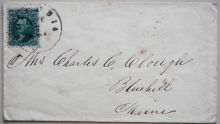 Mrs Charles C. Clough
Bluehill
Maine